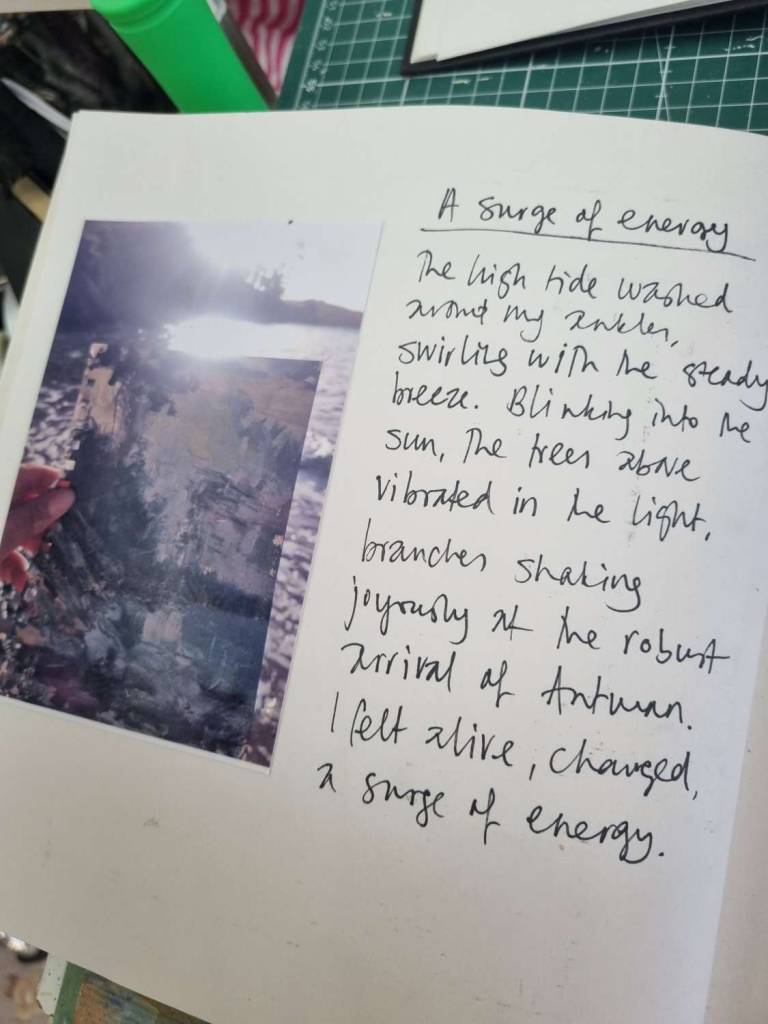 A surge of energy
The high tide washed
around my ankles,
swirling with the steady
breeze. Blinking into the
sun, the trees above
vibrated in the light,
branches shaking
joyously at the robust
arrival of Autumn.
I felt alive, changed,
a surge of energy.